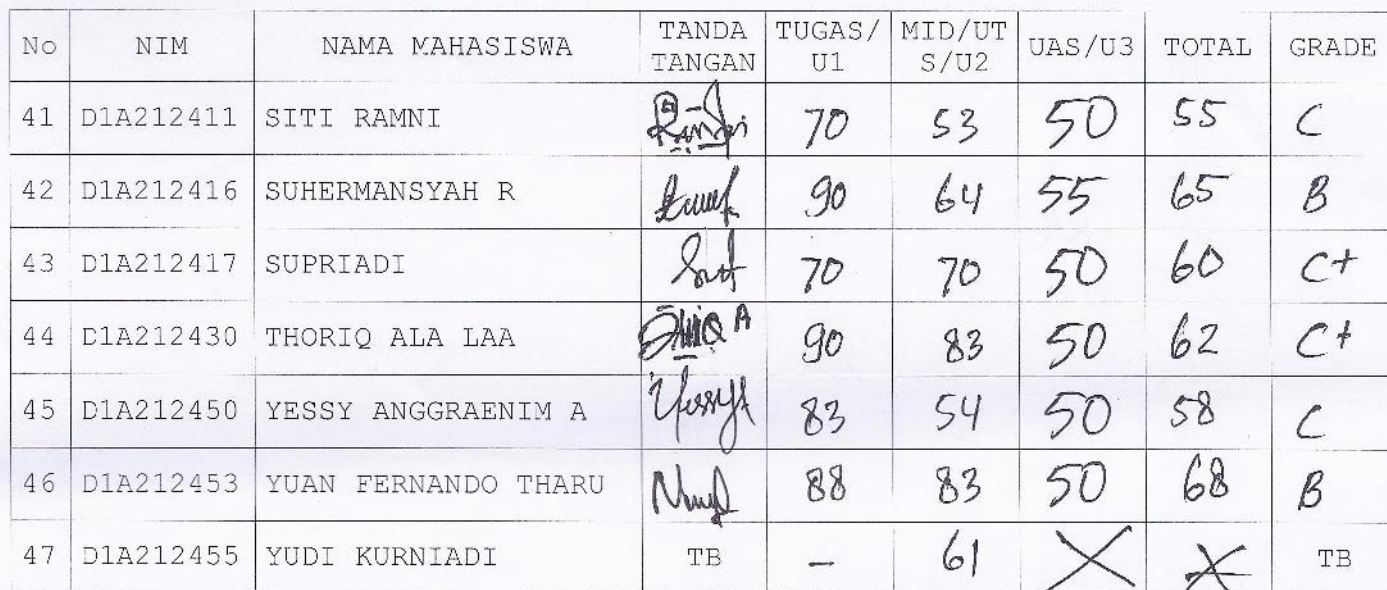 No NIM NAMA MAHASISWA TANDA TANGAN TUGAS/U1 MID/UTS/U2 UAS/U3 TOTAL GRADE
41 D1A212411 SITI RAMNI 70 53 50 55 C
42 D1A212416 SUHERMANSYAH R 90 64 55 65 B
43 D1A212417 SUPRIADI 70 70 50 60 C+
44 D1A212430 THORIQ ALA LAA 90 83 50 62 C+
45 D1A212450 YESSY ANGGRAENIM A 83 54 50 58 C
46 D1A212453 YUAN FERNANDO THARU 88 83 50 68 B
47 D1A212455 YUDI KURNIADI TB – 61 X X TB